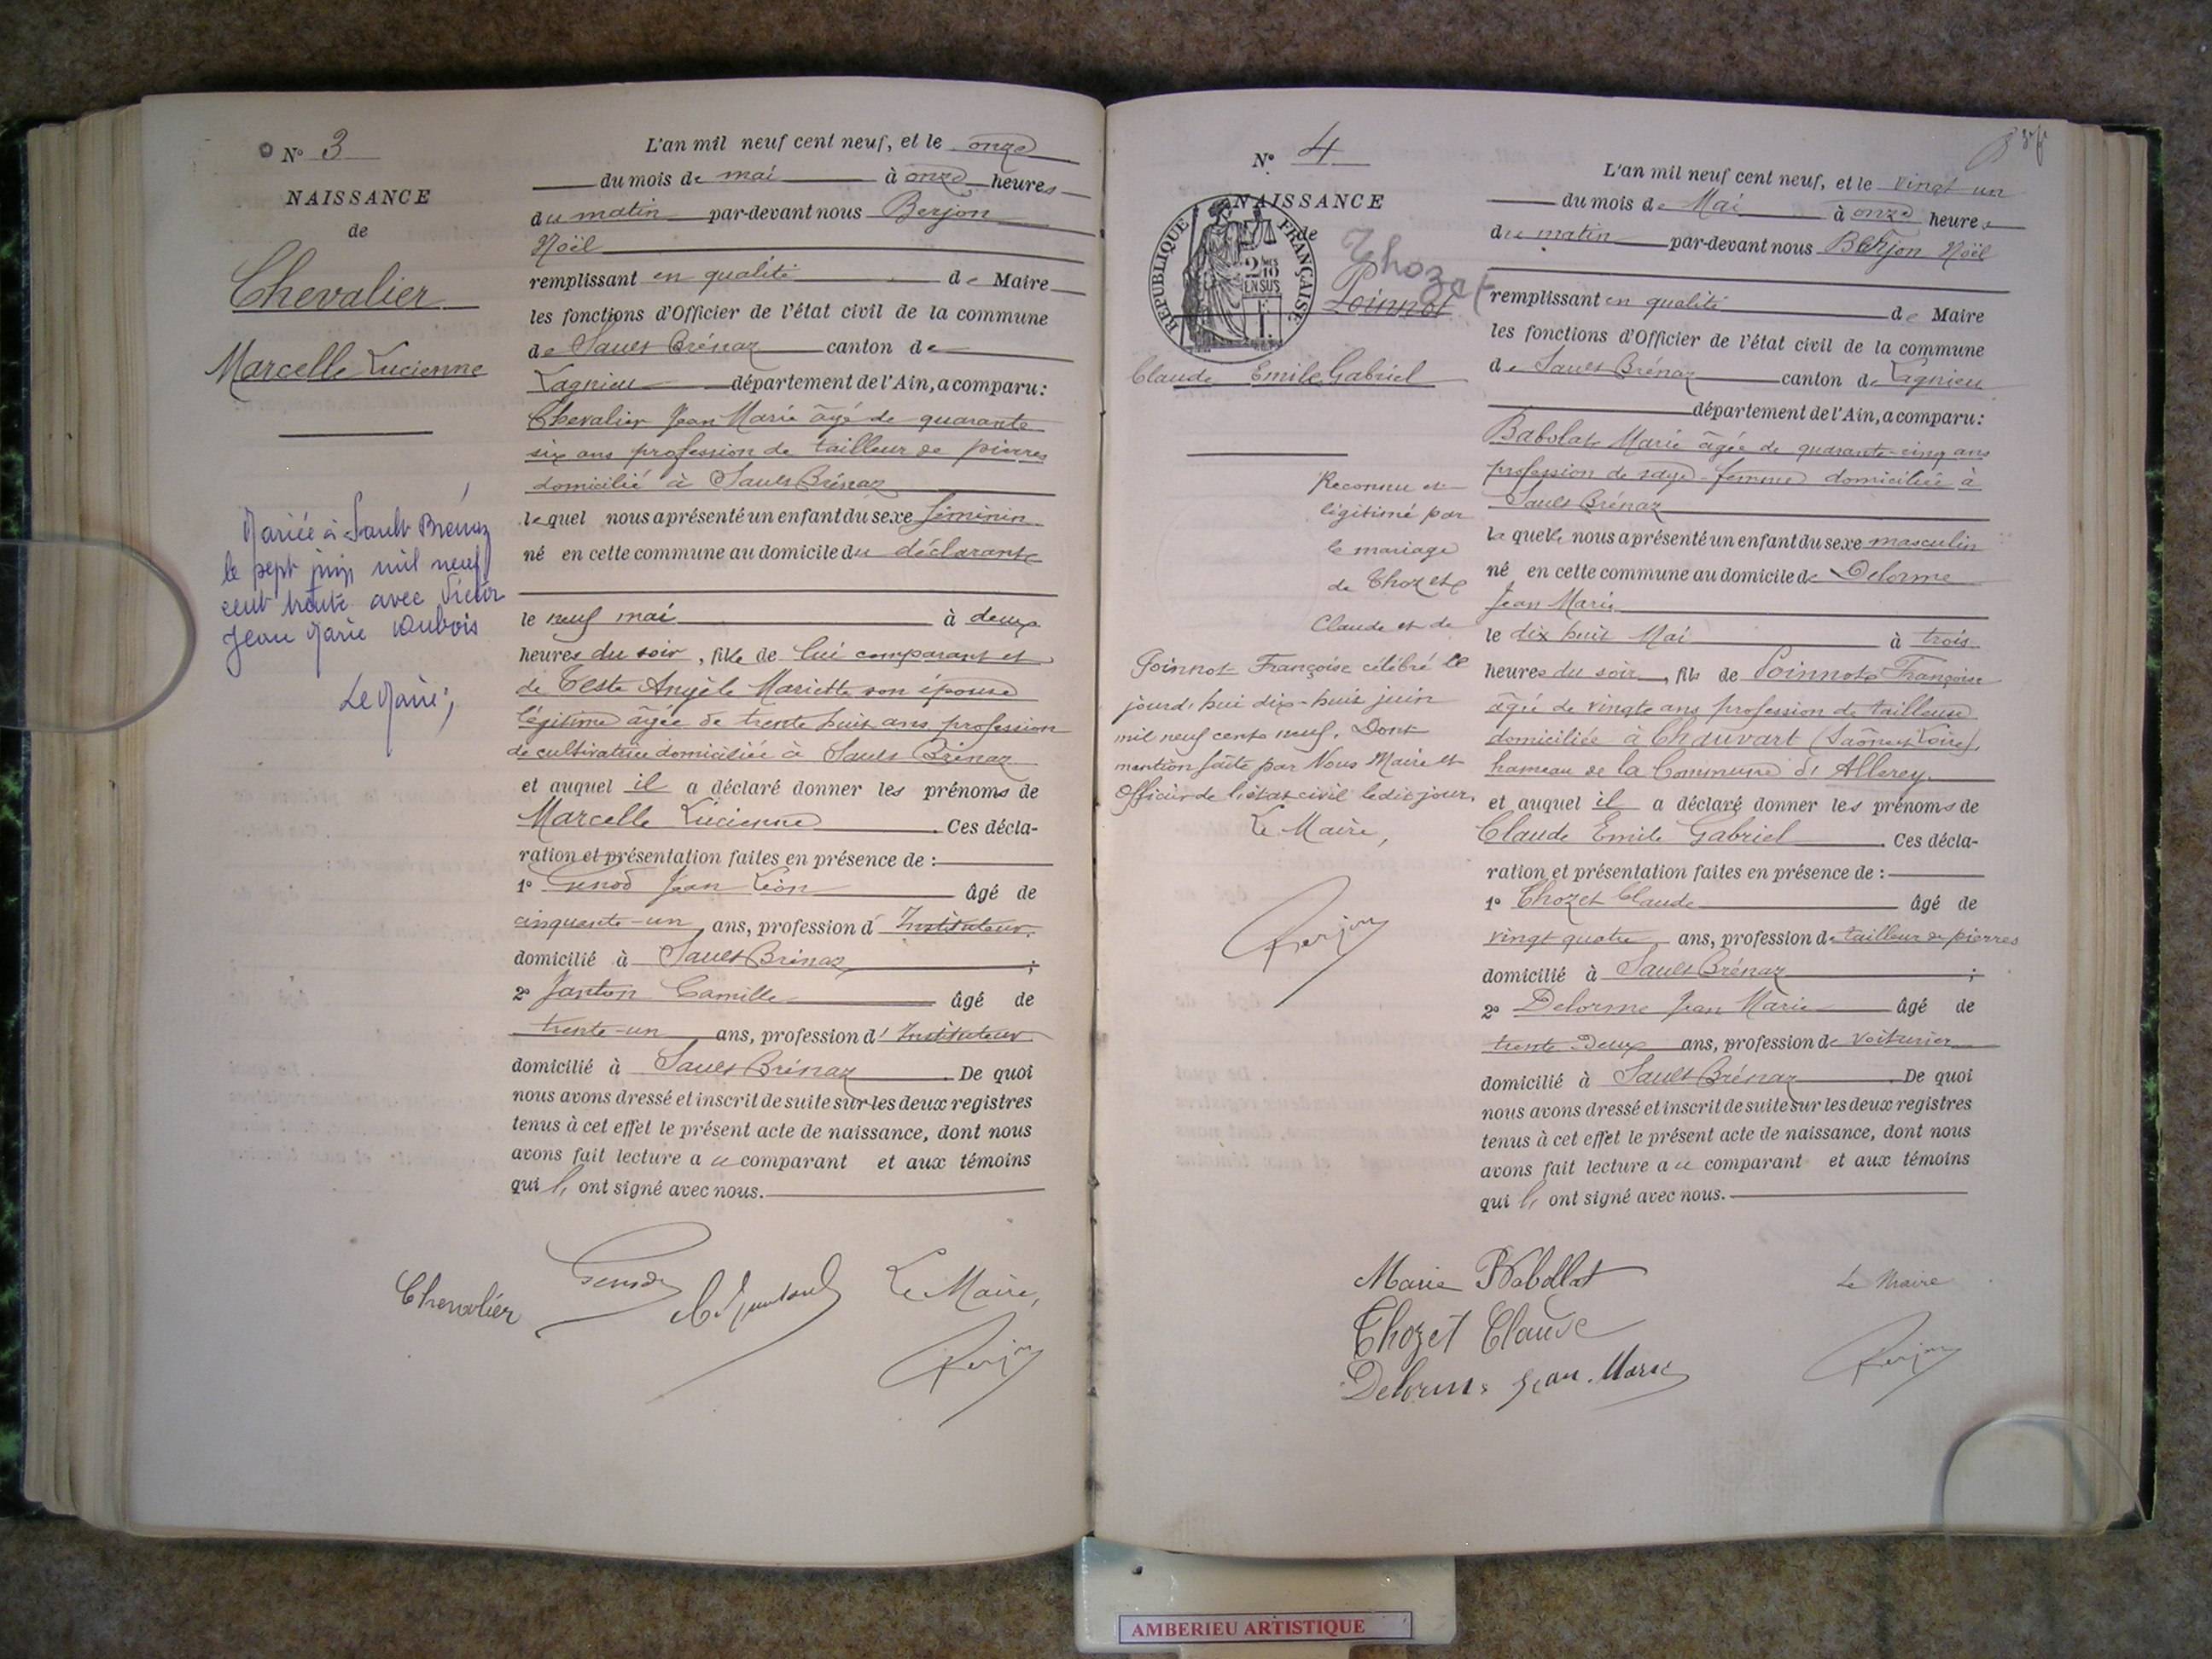 N° 3
NAISSANCE
de
Chevalier
Marcelle Lucienne
Mariée à Sault Brénaz
le sept juin mil neuf
cent trente avec Victor
Jean Marie Dubois
Le Maire,
L'an mil neuf cent neuf, et le onze
du mois de mai à onze heures
du matin par-devant nous Berjon
Noël
remplissant en qualité de Maire
les fonctions d'Officier de l'état civil de la commune
de Sault Brénaz canton de
Lagnieu département de l'Ain, a comparu:
Chevalier Jean Marie âgé de quarante
six ans profession de tailleur de pierres
domicilié à Sault Brénaz
lequel nous a présenté un enfant du sexe féminin
né en cette commune au domicile du déclarant
le neuf mai à deux
heures du soir, fille de lui comparant et
de Teste Angèle Mariette son épouse
légitime âgée de trente huit ans profession
de cultivatrice domiciliée à Sault Brénaz
et auquel il a déclaré donner les prénoms de
Marcelle Lucienne. Ces décla-
ration et présentation faites en présence de :
1° Genod Jean Léon âgé de
cinquante-un ans, profession d' Instituteur
domicilié à Sault Brénaz ;
2° Janton Camille âgé de
trente-un ans, profession d' Instituteur
domicilié à Sault Brénaz. De quoi
nous avons dressé et inscrit de suite sur les deux registres
tenus à cet effet le présent acte de naissance, dont nous
avons fait lecture a u comparant et aux témoins
qui l' ont signé avec nous.
Chevalier Genod Le Maire,
Berjon
N° 4
NAISSANCE
de
RÉPUBLIQUE FRANÇAISE
2/10 EN SUS
Thozet
Poinnot
Claude Emile Gabriel
Reconnu et
légitimé par
le mariage
de Thozet
Claude et de
Poinnot Françoise célébré ce
jourd'hui dix-huit juin
mil neuf cent neuf. Dont
mention faite par Nous Maire et
Officier de l'état civil ledit jour.
Le Maire,
Berjon
L'an mil neuf cent neuf, et le vingt un
du mois de Mai à onze heures
du matin par-devant nous Berjon Noël
remplissant en qualité de Maire
les fonctions d'Officier de l'état civil de la commune
de Sault Brénaz canton de Lagnieu
département de l'Ain, a comparu:
Babolat Marie âgée de quarante-cinq ans
profession de sage-femme domiciliée à
Sault Brénaz
laquelle nous a présenté un enfant du sexe masculin
né en cette commune au domicile de Delorme
Jean Marie
le dix huit Mai à trois
heures du soir, fils de Poinnot Françoise
âgée de vingt ans profession de tailleuse
domiciliée à Chauvart (Saône et Loire),
hameau de la Commune d' Allerey.
et auquel il a déclaré donner les prénoms de
Claude Emile Gabriel. Ces décla-
ration et présentation faites en présence de :
1° Thozet Claude âgé de
vingt quatre ans, profession de tailleur de pierres
domicilié à Sault Brénaz ;
2° Delorme Jean Marie âgé de
trente Deux ans, profession de voiturier
domicilié à Sault Brénaz. De quoi
nous avons dressé et inscrit de suite sur les deux registres
tenus à cet effet le présent acte de naissance, dont nous
avons fait lecture a u comparant et aux témoins
qui l' ont signé avec nous.
Marie Babollat
Le Maire
Thozet Claude
Berjon
Delorme Jean-Marie
AMBERIEU ARTISTIQUE